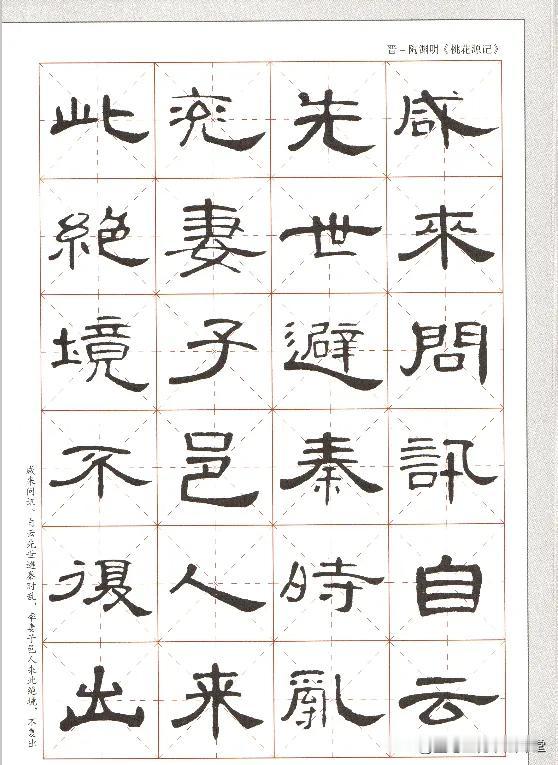 晋－陶渊明《桃花源记》
咸來問訊自云
先世避秦時亂
率妻子邑人来
此絕境不復出
咸来问讯。自云先世避秦时乱，率妻子邑人来此绝境，不复出